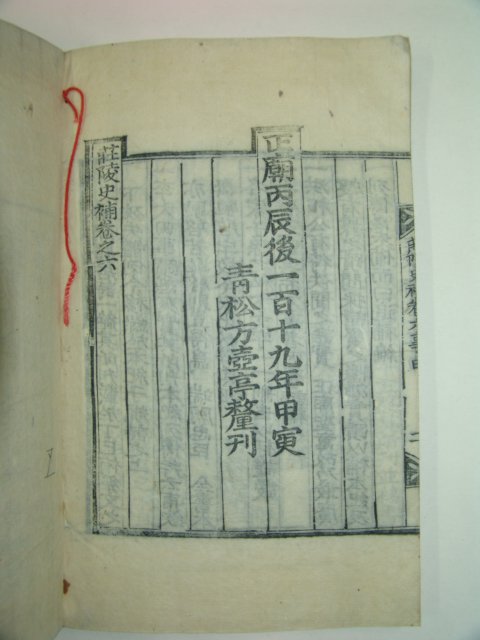 正廟丙辰後一百十九年甲寅
靑松方壺亭釐刊
莊陵史補卷之六